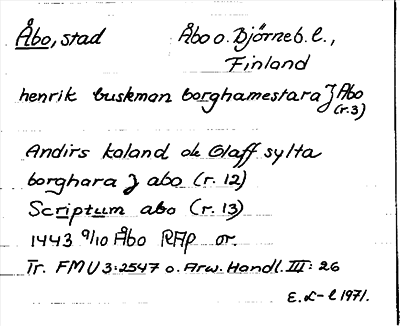 Åbo, stad Åbo o. Björneb. l.,
Finland
henrik buskman borghamestara j Abo
(r.3)
Andirs kaland ok Olaff sylta
borghara j abo (r. 12)
Scriptum abo (r. 13)
1443 9/10 Åbo RAp or.
Tr. FMU 3:2547 o. Arw. Handl. III: 26
E. L-l 1971.